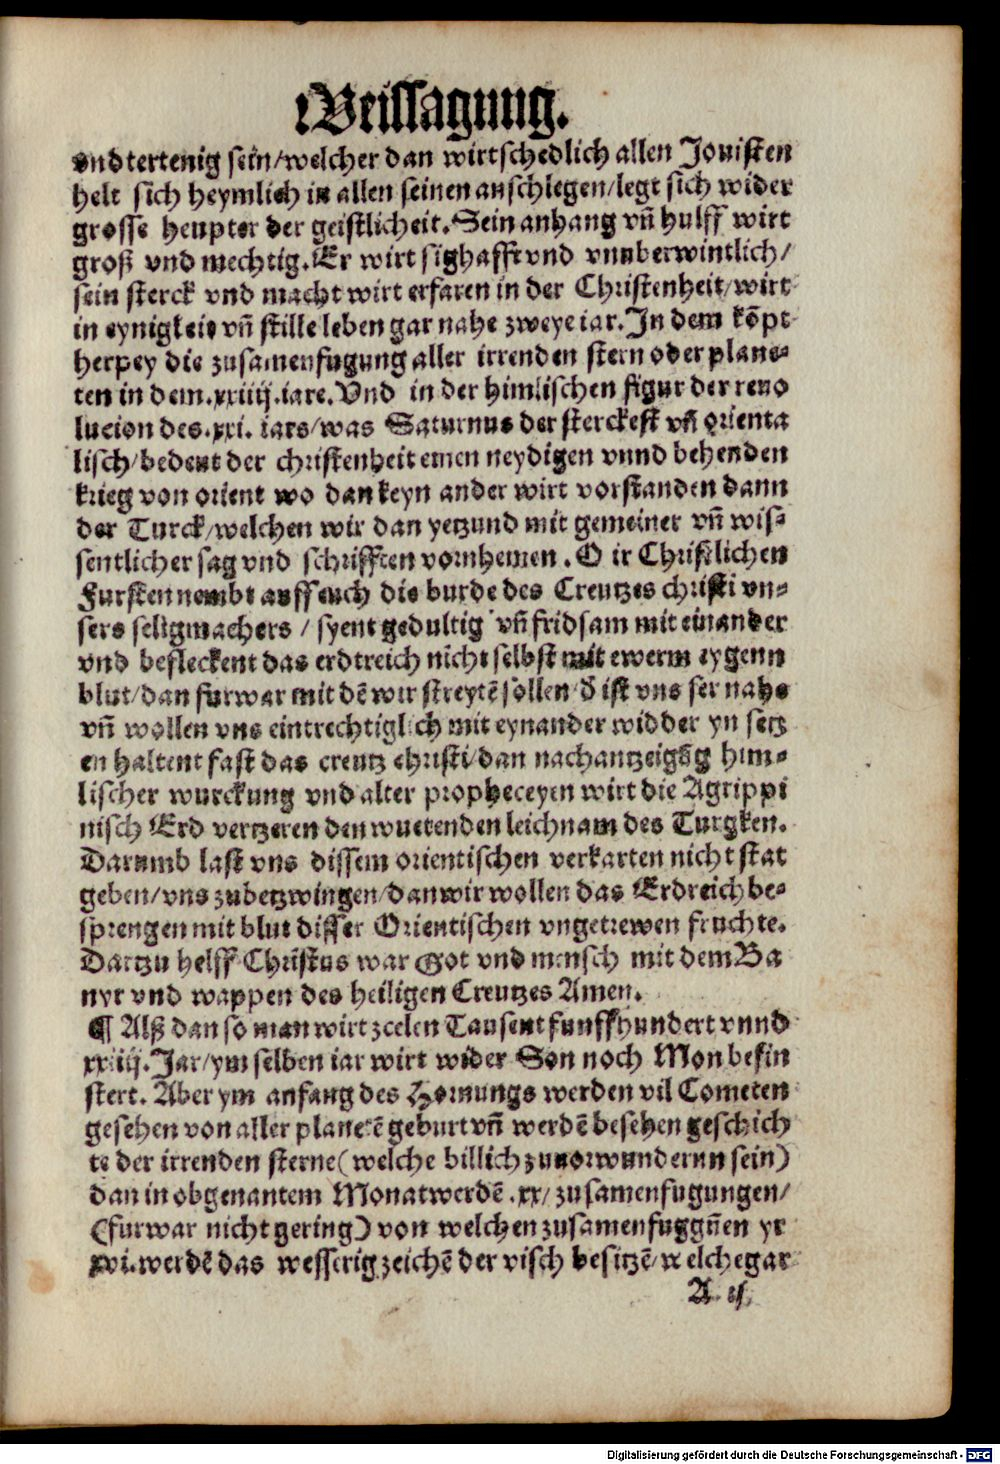 Weissagung.
vndtertenig sein/welcher dan wirt schedlich allen Jouisten
helt sich heymlich in allen seinen anschlegen/legt sich wider
grosse heupter der geistlicheit. Sein anhang vn̄ hulff wirt
groß vnd mechtig. Er wirt sighafft vnd vnuberwintlich/
sein sterck vnd macht wirt erfaren in der Christenheit/wirt
in eynigkeit vn̄ stille leben gar nahe zweye iar. In dem kōpt
herpey die zusamenfugung aller irrenden stern oder plane⸗
ten in dem .xxiiij. iare. Vnd in der himlischen figur der reuo
lucion des .xxi. iars/was Saturnus der sterckest vn̄ orienta
lisch/bedeut der christenheit einen neydigen vnnd behenden
krieg von orient wo dan keyn ander wirt vorstanden dann
der Turck/welchen wir dan yetzund mit gemeiner vn̄ wis⸗
sentlicher sag vnd schrifften vornhemen. O ir Christlichen
Fursten nembt auff euch die burde des Creutzes christi vn⸗
sers seligmachers / syent gedultig vn̄ fridsam mit einander
vnd befleckent das erdtreich nicht selbst mit ewerm eygenn
blut/dan furwar mit dē wir streytē sollen/d̄ ist vns ser nahe
vn̄ wollen vns eintrechtiglich mit eynander widder yn setz
en haltent fast das creutz christi/dan nach antzeigūg him⸗
lischer wurckung vnd alter propheceyen wirt die Agrippi
nisch Erd vertzeren den wuetenden leichnam des Turgken.
Darumb last vns dissem orientischen verkarten nicht stat
geben/vns zubetzwingen/dan wir wollen das Erdreich be⸗
sprengen mit blut disser Orientischen vngetrewen fruchte.
Dartzu helff Christus war Got vnd mensch mit dem Ba
nyr vnd wappen des heiligen Creutzes Amen.
¶ Alß dan so man wirt zcelen Tausent funffhundert vnnd
xxiiij. Jar/ym selben iar wirt wider Son noch Mon befin
stert. Aber ym anfang des Hornungs werden vil Cometen
gesehen von aller planetē geburt vn̄ werdē besehen geschich
te der irrenden sterne (welche billich zuuorwundernn sein)
dan in obgenantem Monat werdē .xx/ zusamenfugungen/
(furwar nicht gering) von welchen zusamenfuggn̄en yr
xvi. werdē das wesserig zeichē der visch besitzē/welche gar
A ij
Digitalisierung gefördert durch die Deutsche Forschungsgemeinschaft - DFG